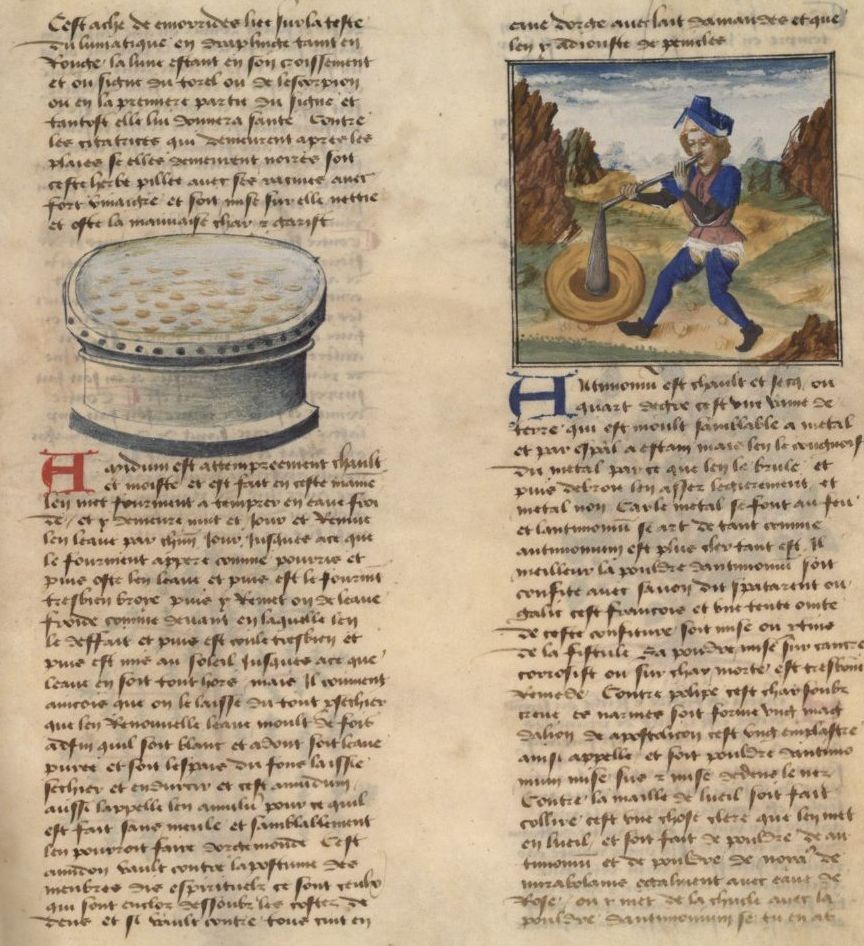 Cest ache de emorrides liee sur la teste
du lunatique en drap linge taint en
Rouge la lune estant en son croissement
et ou signe du torel ou de lescorpion
ou en la premiere partie du signe et
tantost elle lui donnera sante Contre
les citatrices qui demeurent apres les
plaies se elles demeurent noires soit
ceste herbe pillee avec ses racines avec
fort vinaigre et soit mise sur elle nettie
et oste la mauvaise char et garist
Amidum est attempreement chault
et moiste et est fait en ceste maniere
len met fourment a temprer en eaue froi
de et y demeure nuit et jour et Remue
len leaue par chascun jour jusques a ce que
le fourment appere comme pourris et
puis oste len leaue et puis est le fourment
tresbien broye puis y Remet on de leaue
froide comme devant en laquelle len
le deffait et puis est coule tresbien et
puis est mis au soleil jusques a ce que
leaue en soit tout hors mais Il convient
aincois que on le laisse du tout sechier
que len Renouvelle leaue moult de fois
adfin quil soit blanc et adont soit leaue
puree et soit lespais du fons laissie
sechier et endurcir et cest amidum
aussi lappelle len amilum pour ce quil
est fait sans meule et samblablement
len pourroit faire dorge monde Cest
amidon vault contre lapostume des
membres dis espirituelz ce sont ceulx
qui sont enclos dessoubz les costes de
dens et si vault contre tous cuit en
eaue dorge avec lait damandes et que
len y adiouste de penides
Antimonium est chault et secq ou
quart degre cest une vaine de
terre qui est moult samblable a metal
et par especial a estain mais len le congnoist
du metal par ce que len le brule et
puis debrou len assez legierement et
metal non Car le metal se font au feu
et lantimonium se art de tant comme
antimonium est plus cler tant est Il
meilleur la pouldre dantimonium soit
confite avec savon dit spatarent ou
galic cest francois et une tente ointe
de ceste confiture soit mise ou
de la fistule Sa pouldre mise sur cancre
corrosift ou sur char morte est tresbon
Remede Contre polipe cest char soubz
creue es narines soit forme ung mag
dalion de apostolicon cest ung emplastre
ainsi appelle et soit pouldre dantimo
nium mise sus et mise dedens le nez
Contre la maille de lueil soit fait
collire cest une chose clere que len met
en lueil et soit fait de pouldre de an
timonium et de pouldre de de
mirabolans egalment avec eaue de
Rose ou y met de la avec la
pouldre dantimonium se tu en as